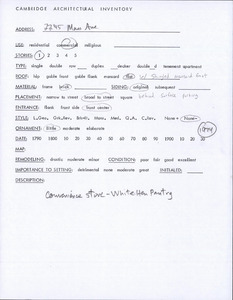 CAMBRIDGE ARCHITECTURAL INVENTORY
ADDRESS: 2245 Mass Ave
USE: residential commercial religious
STORIES: 1 2 3 4 5
TYPE: single double row duplex double d tenement apartment
ROOF: hip gable front gable flank mansard flat
MATERIAL: frame brick SIDING: original subsequent
PLACEMENT: narrow to street broad to street
ENTRANCE: flank front side front center
ORNAMENT: little moderate elaborate
DATE: 1790 1800 10 20 30 40 50 60 70 80 90 1900 10 20 30
MAP:
REMODELING: drastic moderate minor CONDITION: poor fair good excellent
IMPORTANCE TO SETTING: detrimental none moderate great INITIALED:
DESCRIPTION:
Convenience store - White Hen Pantry